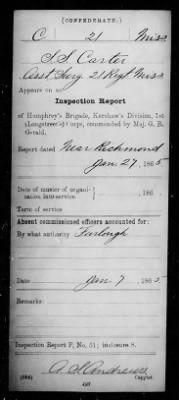 (CONFEDERATE.)
C 21 Miss
S. S. Carter
Asst Surg, 21 Regt Miss
Appears on
Inspection Report
of Humphrey's Brigade, Kershaw's Division, 1st
(Longstreet's) Corps, commanded by Maj. G. B.
Gerald.
Report dated Near Richmond
Jan. 27, 1865
Date of muster of organi-
zation into service. 186
Term of service
Absent commissioned officers accounted for:
By what authority Furlough
Date Jan 7, 1865
Remarks:
Inspection Report P, No. 51; inclosure 8.
A. S. Andrews
Copyist.